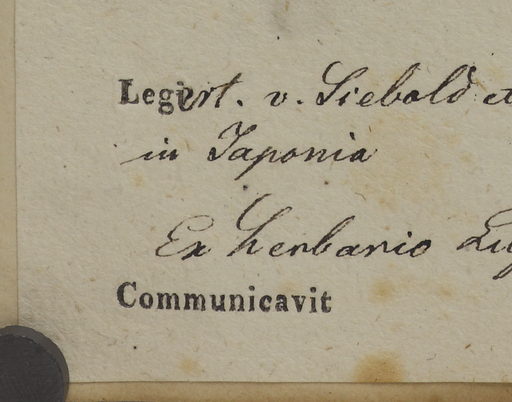 Legert. v. Siebold et
in Japonia
Ex herbario Lug
Communicavit